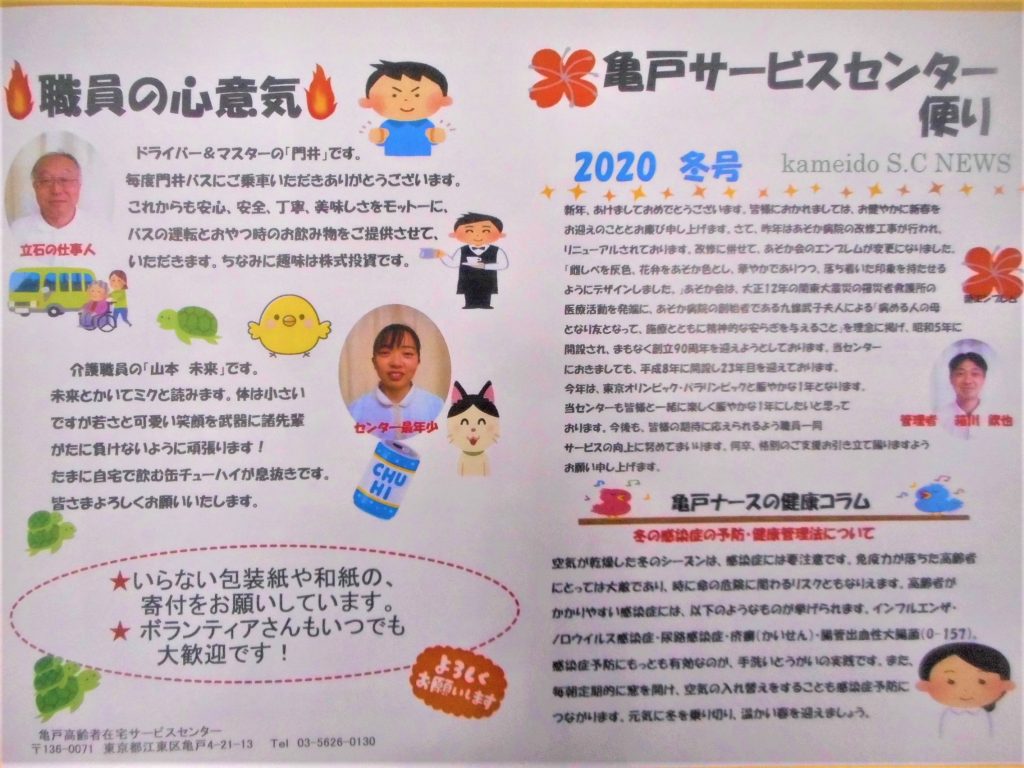 職員の心意気
ドライバー＆マスターの「門井」です。
毎度門井バスにご乗車いただきありがとうございます。
これからも安心、安全、丁寧、美味しさをモットーに、
バスの運転とおやつ時のお飲み物をご提供させて、
いただきます。ちなみに趣味は株式投資です。
立石の仕事人
介護職員の「山本 未来」です。
未来とかいてミクと読みます。体は小さい
ですが若さと可愛い笑顔を武器に諸先輩
がたに負けないように頑張ります！
たまに自宅で飲む缶チューハイが息抜きです。
皆さまよろしくお願いいたします。
センター最年少
CHU
HI
★いらない包装紙や和紙の、
寄付をお願いしています。
★ ボランティアさんもいつでも
大歓迎です！
よろしく
お願いします
亀戸高齢者在宅サービスセンター
〒136-0071 東京都江東区亀戸4-21-13 Tel 03-5626-0130
亀戸サービスセンター
便り
2020 冬号 kameido S.C NEWS
新年、あけましておめでとうございます。皆様におかれましては、お健やかに新春を
お迎えのこととお慶び申し上げます。さて、昨年はあそか病院の改修工事が行われ、
リニューアルされております。改修に併せて、あそか会のエンブレムが変更になりました。
「雌しべを灰色、花弁をあそか色とし、華やかでありつつ、落ち着いた印象を持たせる
ようにデザインしました。」あそか会は、大正12年の関東大震災の罹災者救護所の
医療活動を発端に、あそか病院の創始者である九條武子夫人による「病める人の母
となり友となって、施療とともに精神的な安らぎを与えること」を理念に掲げ、昭和5年に
開設され、まもなく創立90周年を迎えようとしております。当センター
におきましても、平成8年に開設し23年目を迎えております。
今年は、東京オリンピック・パラリンピックと賑やかな1年となります。
当センターも皆様と一緒に楽しく賑やかな1年にしたいと思って
おります。今後も、皆様の期待に応えられるよう職員一同
サービスの向上に努めてまいります。何卒、格別のご支援お引き立て賜りますよう
お願い申し上げます。
新エンブレム
管理者
亀戸ナースの健康コラム
冬の感染症の予防・健康管理法について
空気が乾燥した冬のシーズンは、感染症には要注意です。免疫力が落ちた高齢者
にとっては大敵であり、時に命の危険に関わるリスクともなりえます。高齢者が
かかりやすい感染症には、以下のようなものが挙げられます。インフルエンザ・
ノロウイルス感染症・尿路感染症・疥癬(かいせん)・腸管出血性大腸菌(O-157)。
感染症予防にもっとも有効なのが、手洗いとうがいの実践です。また、
毎朝定期的に窓を開け、空気の入れ替えをすることも感染症予防に
つながります。元気に冬を乗り切り、温かい春を迎えましょう。